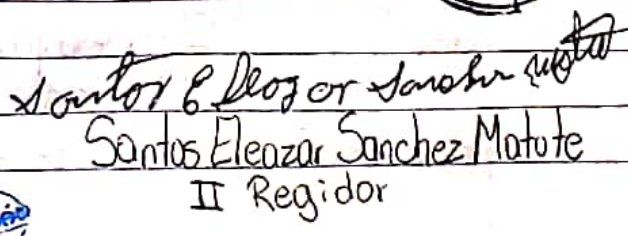 Santos Eleazar Sanchez Matute
Santos Eleazar Sanchez Matute
II Regidor